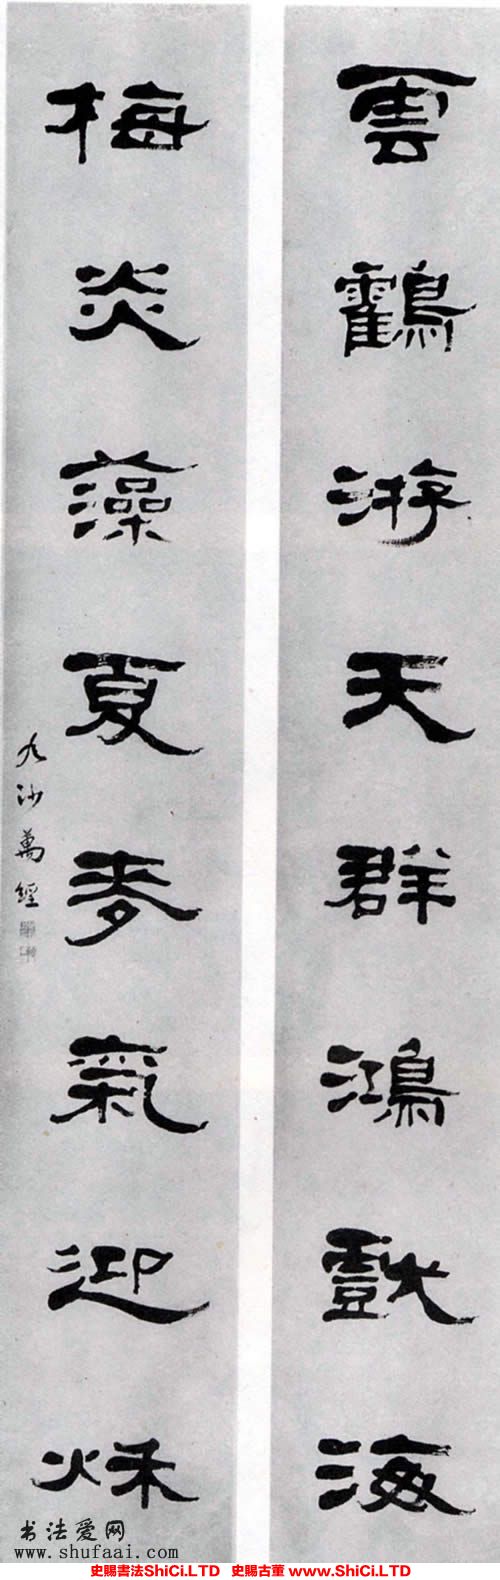 雲鶴游天群鴻戲海
梅炎藻夏麥氣迎秋
九沙萬經
书法爱网
www.shufaai.com
史賜書法ShiCi.LTD 史賜古董 www.ShiCi.LTD